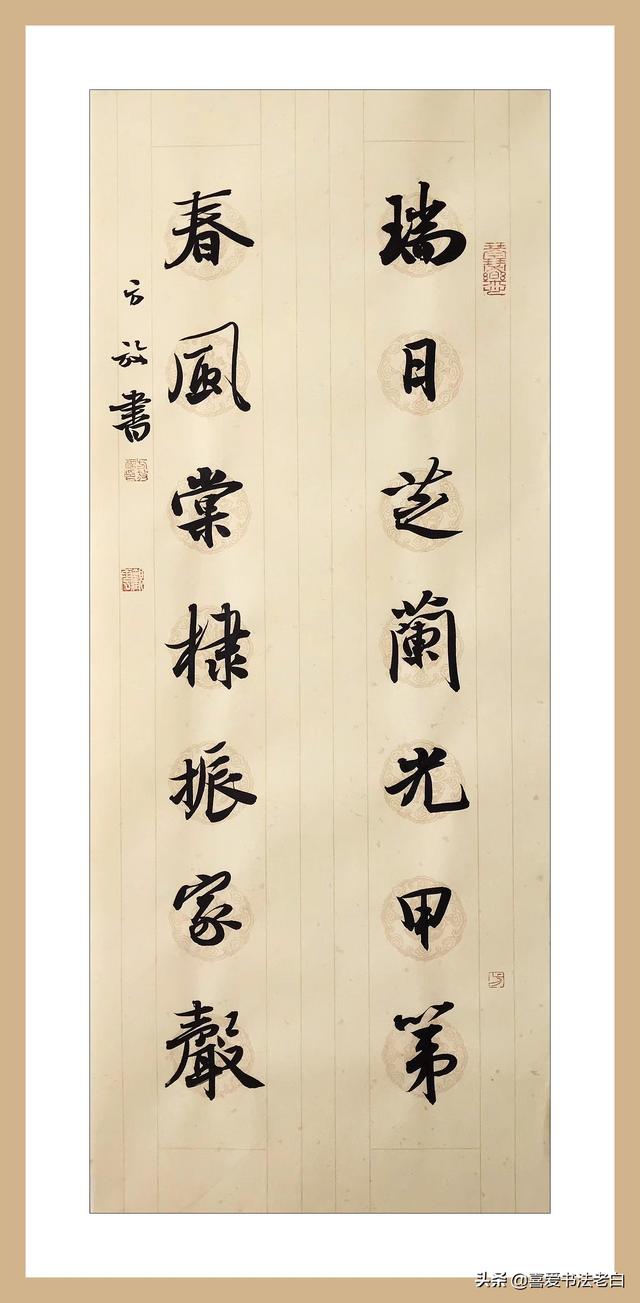 瑞日芝蘭光甲第
春風棠棣振家聲
方放書
头条 @喜爱书法老白